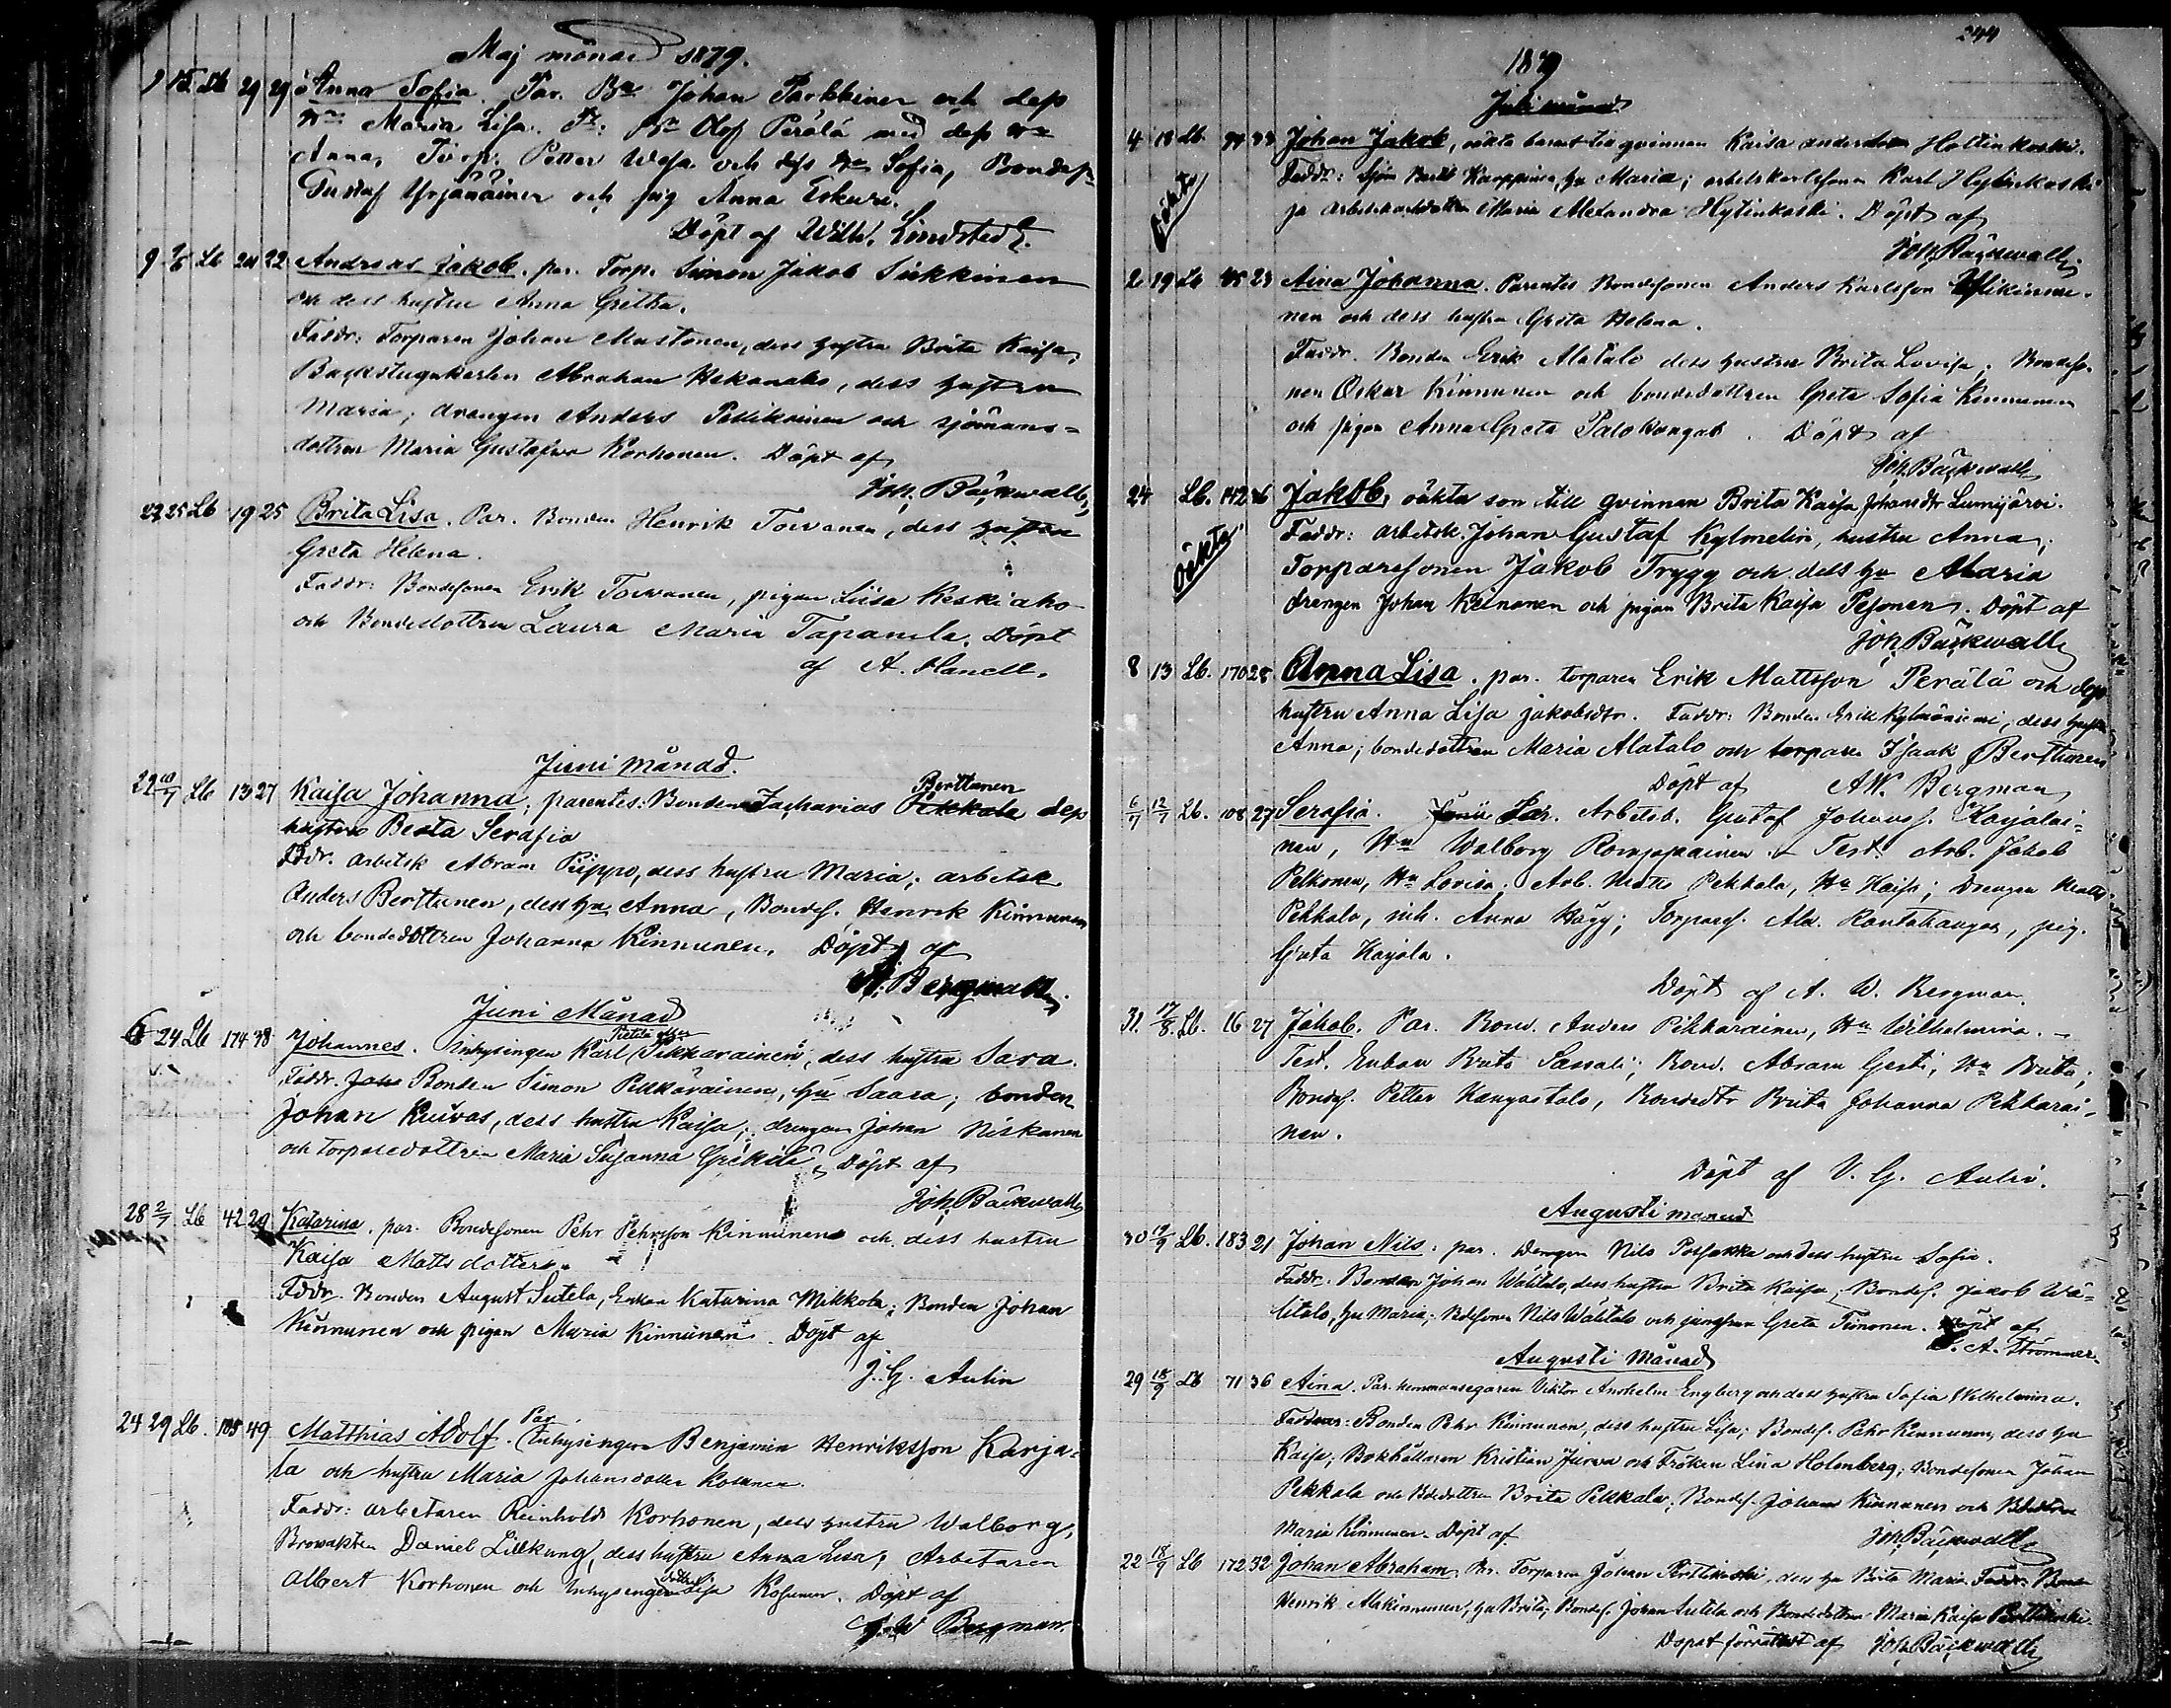 Maj månad 1879.
9 15 Lb 29 29 Anna Sofia. Par. Bn Johan Parkkinen och dess
Hu Maria Lisa. Bn Olof Perälä med dess Hu
Anna, Torp. Petter Wesa och dess Hu Sofia, Bondes.
Gustaf Yrjänäinen och pig Anna Eskuri.
Döpt af Wilh. Lindstedt.
9 Lb 24 22 Andreas Jakob. par. Torp. Simon Jakob Sirkkinen
och dess hustru Anna Gretha.
Faddr: Torparen Johan Mustonen, dess hustru Brita Kaisa,
Backstugukarlen Abraham Hekanaho, dess hustru
Maria; drängen Anders Pellikainen och sjömans=
dottren Maria Gustafva Korhonen. Döpt af
Joh. Bäckwall
22 25 Lb 19 25 Brita Lisa. Par. Bonden Henrik Towanen, dess hustru
Greta Helena.
Faddr: Bondesonen Erik Towanen, pigan Liisa Keskiaho
och Bondedottren Laura Maria Tapanila. Döpt
af A. Hanell.
Juni månad.
22 10/7 Lb 13 27 Kaisa Johanna; parentes: Bonden Zacharias Pekkala Berttunen dess
hustru Beata Serafia
Fddr. arbetsk Abram Piippo, dess hustru Maria; arbetsk
Anders Berttunen, dess hu Anna, Bondes. Henrik Kinnunen
och bondedottren Johanna Kinnunen. Döpt af
A. Bergman
Juni Månad
6 24 Lb 174 38 Johannes. Inhysingen Karl Pikkarainen, dess hustru Sara.
Faddr. Bonden Simon Pikkarainen, hu Saara; bonden
Johan Kuivas, dess hustru Kaisa; drängen Johan Niskanen
och torparedottren Maria Susanna Grekilä, Döpt af
Joh. Bäckwall
28 2/7 Lb 42 29 Katarina. par. Bondesonen Pehr Pehrsson Kinnunen och dess hustru
Kaisa Mattsdotter.
Fddr. Bonden August Sutela, Enkan Katarina Mikkola; Bonden Johan
Kinnunen och pigan Maria Kinnunen. Döpt af
J. G. Aulin
24 29 Lb. 105 49 Matthias Adolf. Par Inhysingen Benjamin Henriksson Karja=
la och hustru Maria Johansdotter
Faddr: arbetaren Reinhold Korhonen, dess hustru Walborg,
Browakten Daniel Lillkung, dess hustru Anna Lisa; Arbetaren
Albert Korhonen och Inhysinge dottr. Lisa. Döpt af
A. W. Bergman.
244
1879
Juli månad
4 18 Lb. 33 Johan Jakob, oäkta barnet till qvinnan Kaisa Andersdotter Hottinkoski.
Oäkta
Faddr: Sjöm Karppinen, hu Maria; arbetskarlssonen Karl Hytinkoski
ja arbetskarlsdottren Maria Alexandra Hytinkoski. Döpt af
Joh. Bäckwall
2 19 Lb 45 23 Aina Johanna. Parentes Bondesonen Anders Karlsson
nen och dess hustru Greta Helena.
Faddr. Bonden Erik Alatalo dess hustru Brita Lovisa; Bondeso-
nen Oskar Kinnunen och bondedottren Greta Sofia Kinnunen
och pigan Anna Greta Palokangas. Döpt af
Joh. Bäckwall
24 Lb. 142 26 Jakob, oäkta son till qvinnan Brita Kaisa Johansdtr Lumijärvi.
Oäkta
Faddr: arbetsk. Johan Gustaf Kylmelin, hustru Anna;
Torparesonen Jakob Trygg och dess hu Maria
drengen Johan Keinonen och pigan Brita Kaisa Pesonen. Döpt af
Joh. Bäckwall
8 13 Lb. 170 28 Anna Lisa. par. torparen Erik Mattsson Perälä och dess
hustru Anna Lisa Jakobsdtr. Faddr: Bonden Erik Kylmäniemi, dess hustru
Anna; bondedottren Maria Alatalo och torparen Isaak Berttunen
Döpt af AW. Bergman
6/7 12/7 Lb. 108 27 Serafia. Par. Arbetsk. Gustaf Johanss. Karjalai=
nen, Hu Walborg Romppainen. - Test. Arb. Jakob
Pelkonen, Hu Lovisa; Arb. Matts Pekkala, Hu Kaisa; Drengen Matts
Pekkala, inh. Anna Hägg; Torpares. Ald. Rantakangas, pig.
Greta Karjala.
Döpt af A. W. Bergman.
31. 17/8 Lb. 16 27 Jakob. Par. Bond. Anders Pikkarainen, Hu Wilhelmina. -
Test. Enkan Brita Sassali; Bond. Abram Gerti, Hu Brita;
Bondes. Petter Kangastalo, Bondedtr Brita Johanna Pikkarai=
nen.
Döpt af V. G. Aulin.
Augusti månad
30 19/9 Lb. 183 21 Johan Nils: par. Drengen Nils och dess hustru Sofia.
Faddr: Bonden Johan Wälitalo, dess hustru Brita Kaisa; Bondes. Jakob Wä=
litalo, hu Maria; Bdesonen Nils Wälitalo och jungfrun Greta Timonen. Döpt af
A. Strömmer.
Augusti Månad
29 18/9 Lb 71 36 Aina. Par. hemmansegaren Viktor Anshelm Engberg och dess hustru Sofia Wilhelmina.
Faddrar: Bonden Pehr Kinnunen, dess hustru Lisa; Bondes. Pehr Kinnunen, dess hu
Kaisa; Bokhållaren Kristian Jurva och Fröken Lina Holmberg; Bondesonen Johan
Pekkala och Bdedottren Brita Pekkala; Bondes. Johan Kinnunen och Bdedottren
Maria Kinnunen. Döpt af
Joh. Bäckwall
22 18/9 Lb 172 32 Johan Abraham. Par. Torparen Johan Perttikoski, dess hu Brita Maria. Faddr: Bonden
Henrik Alakinnunen, hu Brita; Bondes. Johan Sutela och Bondedottren Maria Kaisa
Dopet förrättadt af Joh. Bäckwall